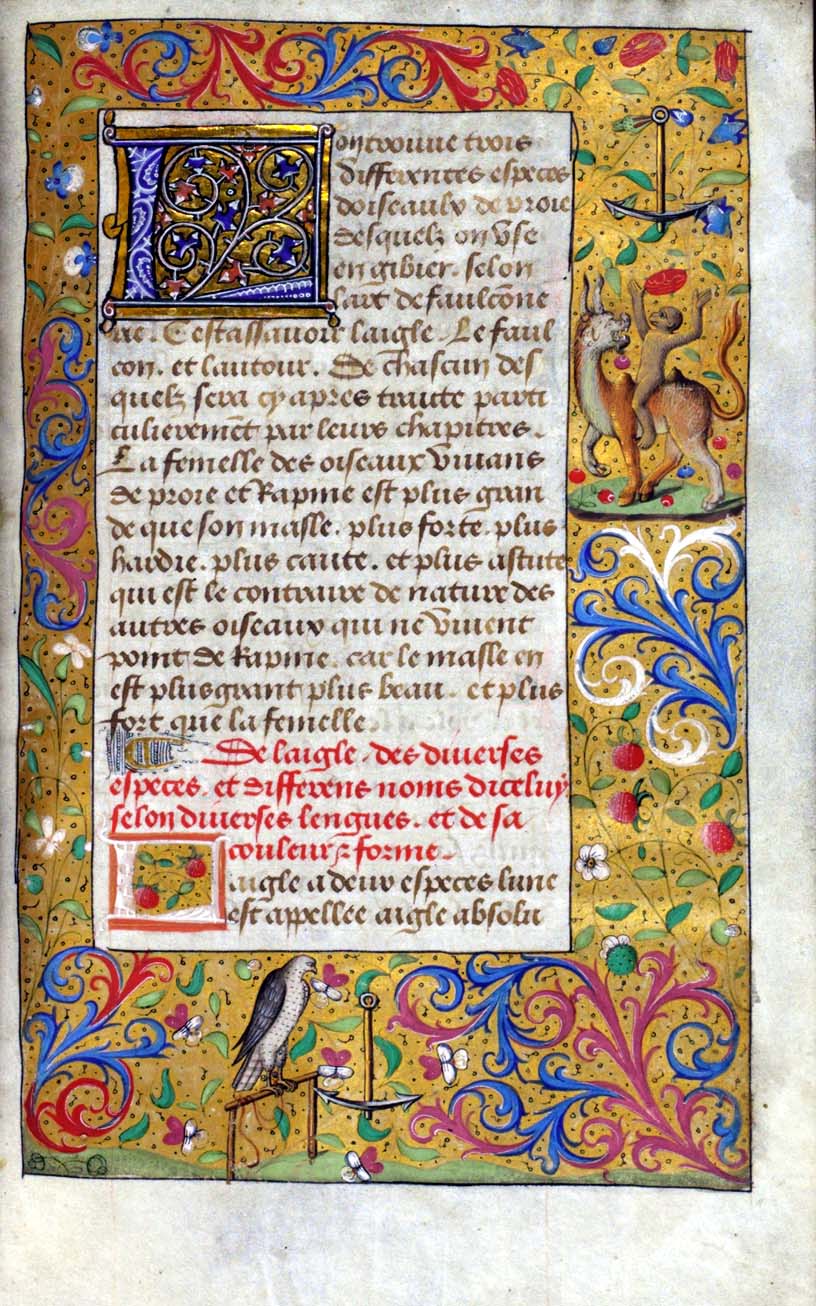 On trouue trois
differentes especes
doiseaulx de proie
desquelz on vse
en gibier. selon
lart de faulcõne
rie. Cestassauoir laigle. Le faul
con. et lautour. De chascun des
quelz sera cy apres traitte parti
culieremẽt par leurs chapitres.
La femelle des oiseaux viuans
de proie et Rapine est plus gran
de que son masle. plus forte. plus
hardie. plus caute. et plus astute
qui est le contraire de nature des
autres oiseaux qui ne viuent
point de Rapine. car le masle en
est plus grant plus beau. et plus
fort que la femelle.
De laigle. des diuerses
especes. et differens noms diceluy
selon diuerses lengues. et de sa
couleur & forme.
Laigle a deux especes lune
est appellee aigle absolu